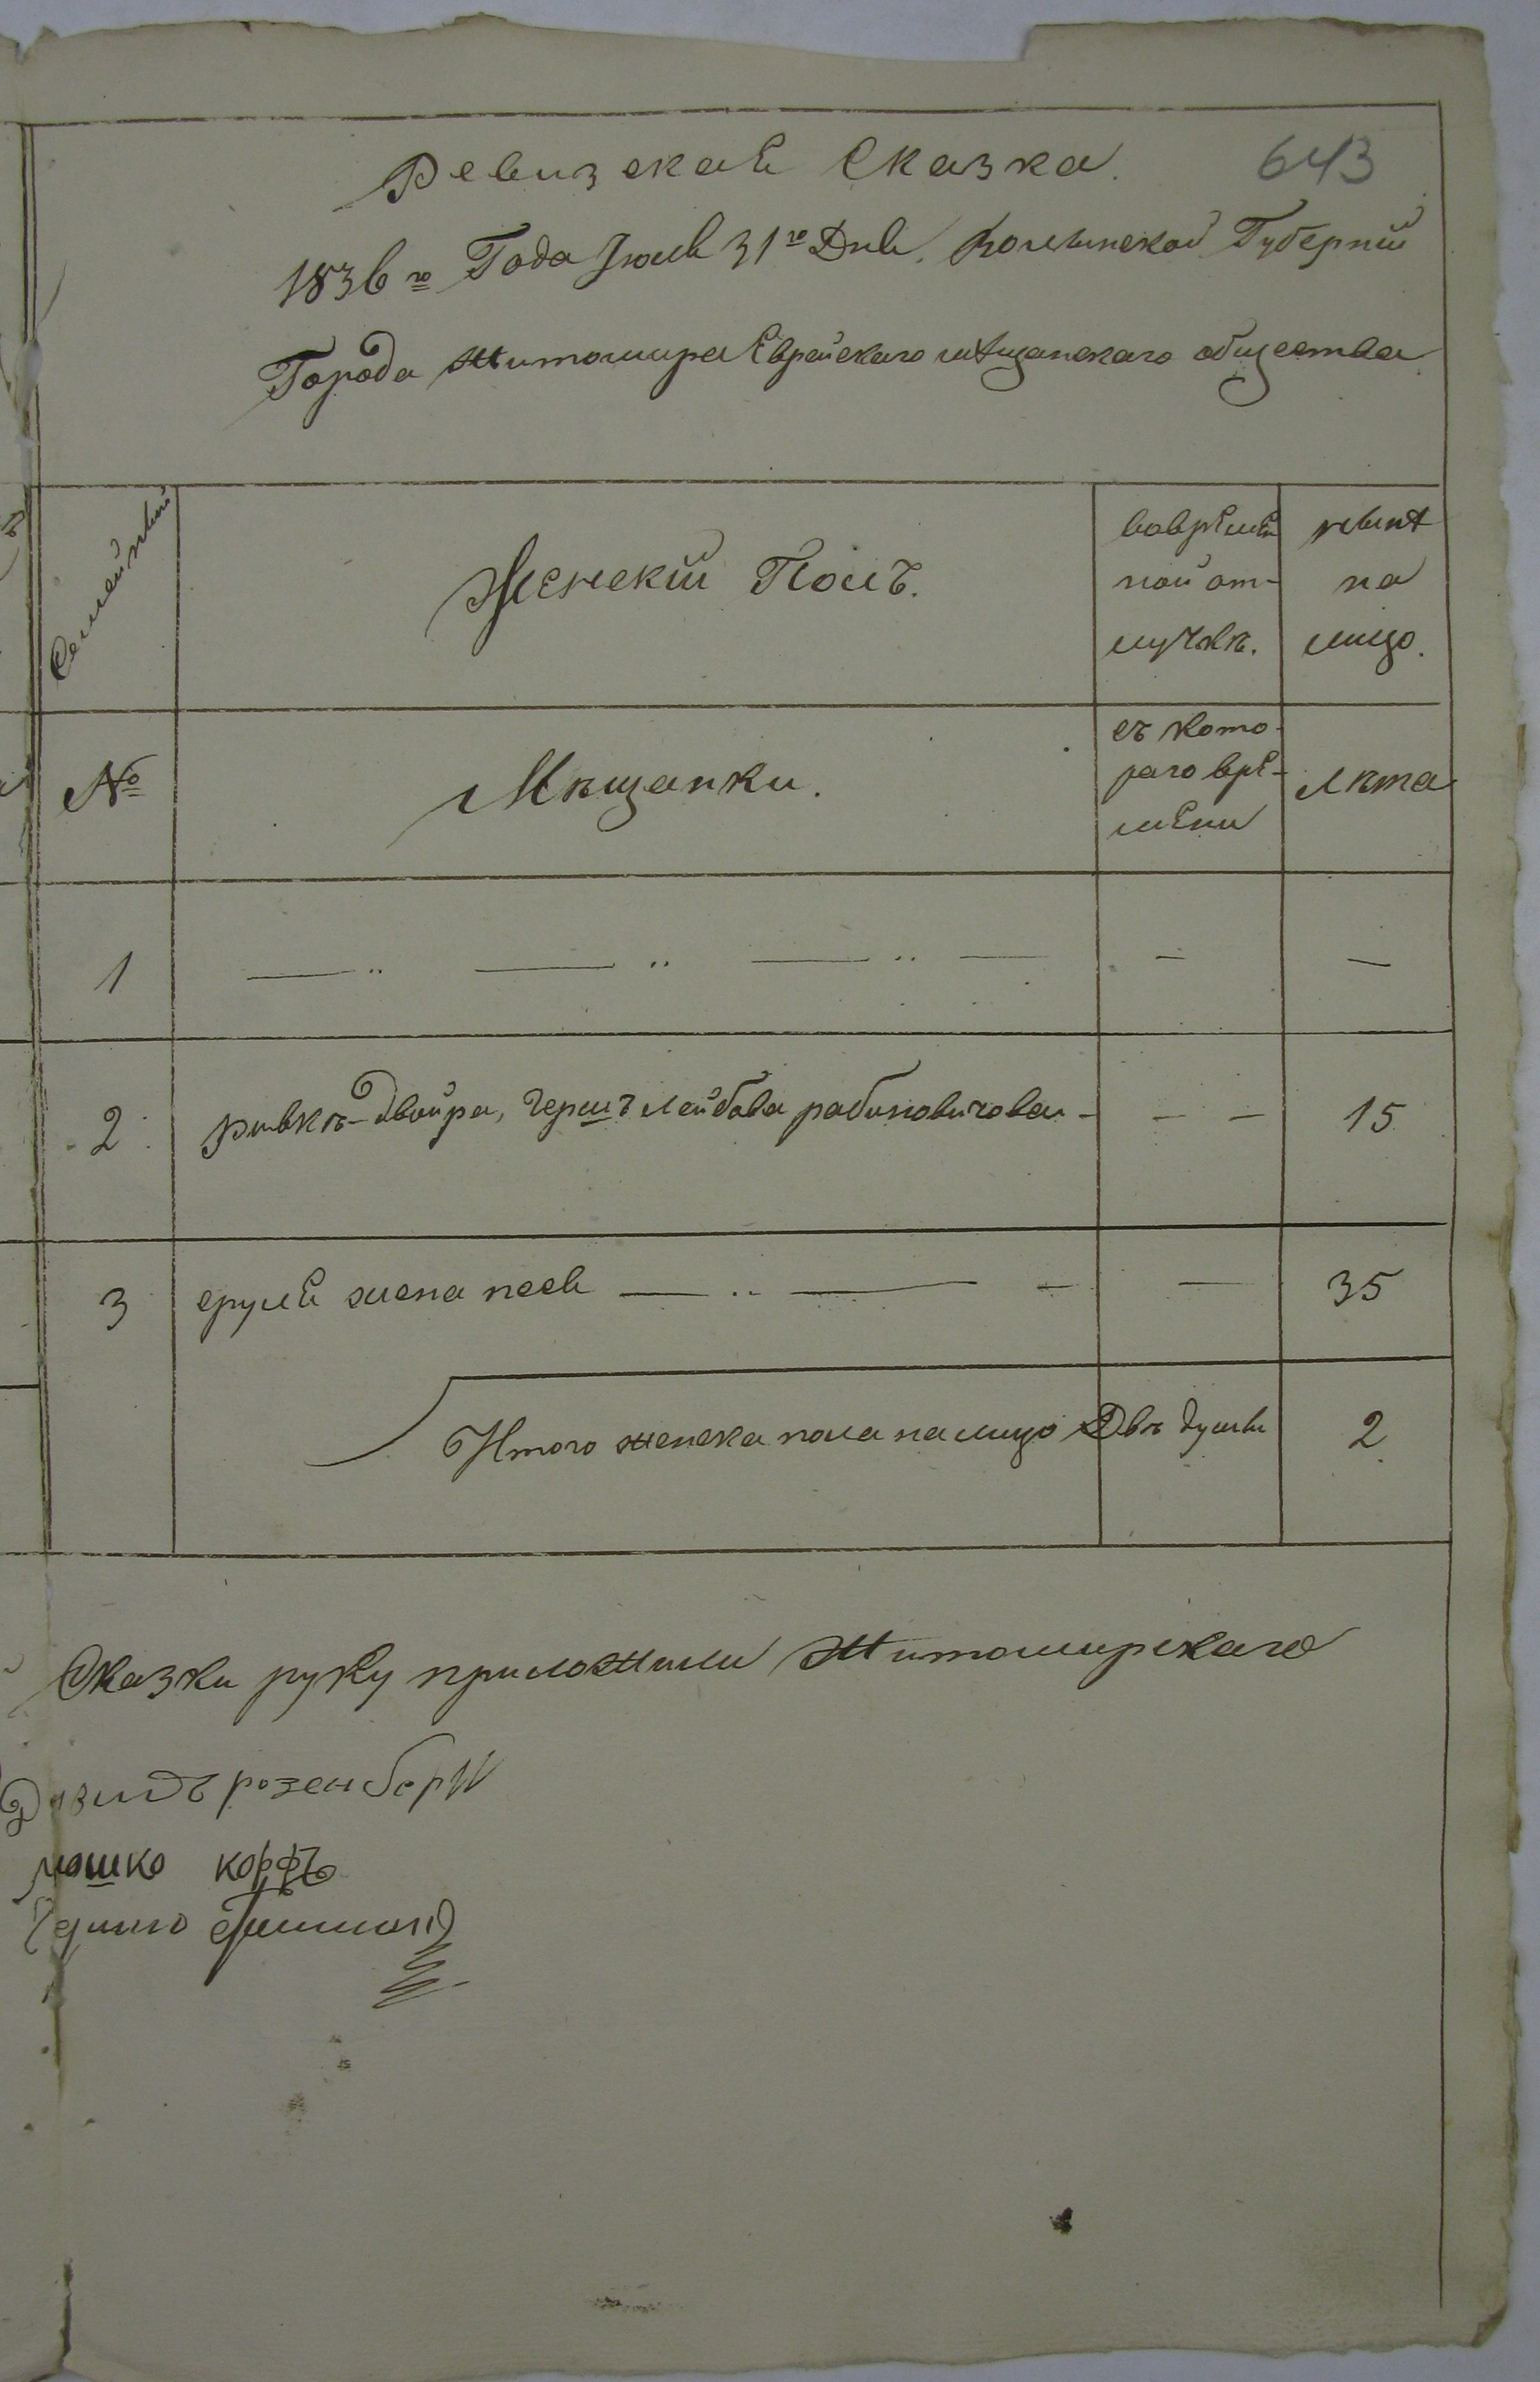 Ревизская Сказка. 643
1836го Года Июля 31го Дня. Волынской Губернии
Города Житомира Еврейскаго мещанскаго общества
Семейный
Женский Полъ.
вовремен
ной от-
лучкѣ.
ныне
на
лицо.
№
Мѣщанки.
съ кото-
раго вре-
мени
лѣта
1 — „ — „ — „ — — —
2 Ривкѣ-двойра, Гершъ Лейбова рабиновичова - - - 15
3 сруля жена песя — „ — - — 35
Итого женска пола налицо Двѣ души 2
Сказки руку приложили Житомирскаго
Давидъ розенберг
мошко корфъ